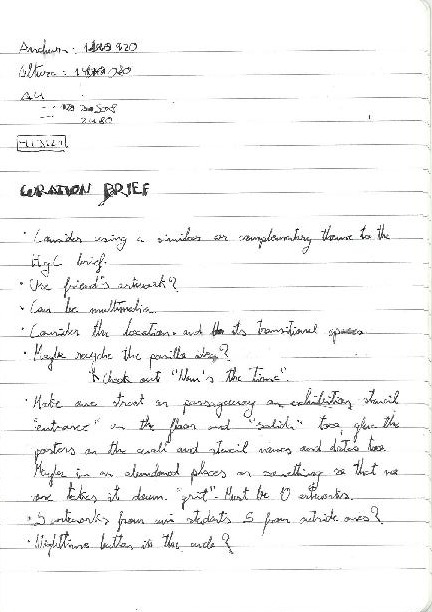 Anchura: 820
Altura: 
CURATION BRIEF
· Consider using a similar or complementary theme to the
brief.
· Use friend's artwork?
· Can be multimedia.
· Consider the location and its transitional spaces
· Maybe recycle the idea?
Check out "Now's the time".
· Make one street or passageway an exhibition, stencil
"entrance" on the floor and "salida" too, glue the
posters on the wall and stencil names and dates too.
Maybe in an abandoned place or something so that no
one takes it down. "grit". Must be 10 artworks.
· 5 artworks from uni students 5 from outside ones?
· Nighttime better in the ?